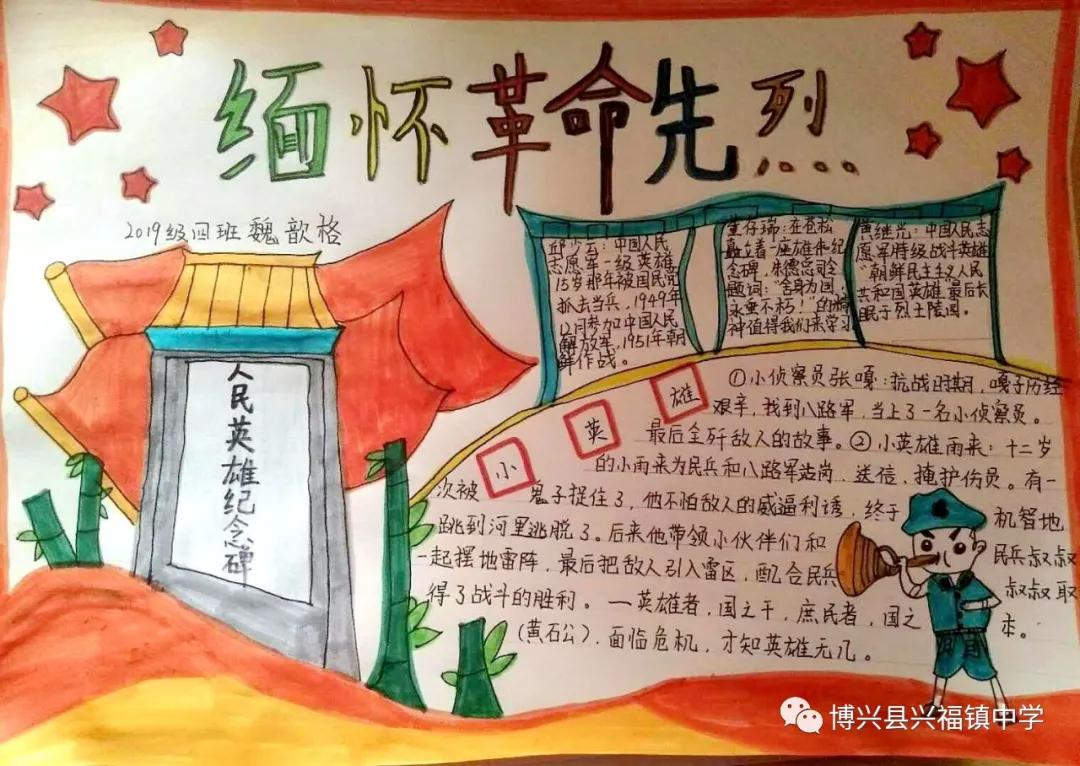 缅怀革命先烈...
2019级四班 魏歆格
人民英雄纪念碑
邱少云：中国人民
志愿军一级英雄
15岁那年被国民党
抓去当兵，1949年
12月参加中国人民
解放军，1951年朝
鲜作战。
董存瑞：在苍松
矗立着一座雄伟纪
念碑，朱德总司令
题词："舍身为国，
永垂不朽！"的精
神值得我们来学习
黄继光：中国人民志
愿军特级战斗英雄
"朝鲜民主主义人民
共和国英雄，最后长
眠于烈士陵园。
小英雄
①小侦察员张嘎：抗战时期，嘎子历经
艰辛，找到八路军，当上了一名小侦察员。
最后全歼敌人的故事。②小英雄雨来：十二岁
的小雨来为民兵和八路军站岗、送信，掩护伤员。有一
次被鬼子捉住了，他不怕敌人的威逼利诱，终于机智地
跳到河里逃脱了。后来他带领小伙伴们和民兵叔叔
一起摆地雷阵，最后把敌人引入雷区，配合民兵叔叔取
得了战斗的胜利。一英雄者，国之干，庶民者，国之本。
(黄石公)．面临危机，才知英雄无几。
博兴县兴福镇中学